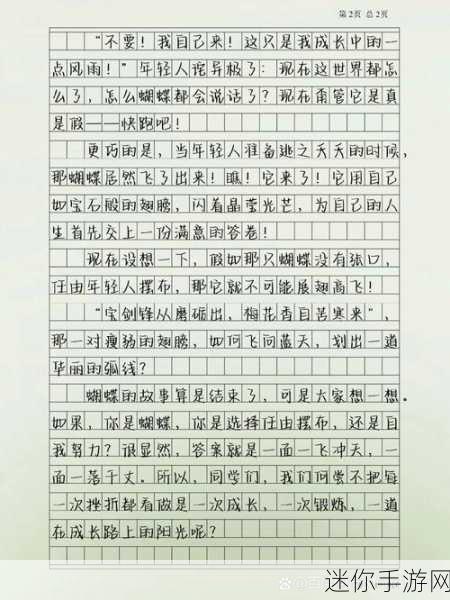 第2页 总2页
“不要！我自己来！这只是我成长中的一
点风雨！”年轻人诧异极了：现在这世界都怎
么了，怎么蝴蝶都会说话了？现在甭管它是真
是假——快跑吧！
更巧的是，当年轻人准备逃之夭夭的时候，
那蝴蝶居然飞了出来！瞧！它来了！它用自己
如宝石般的翅膀，闪着晶莹光芒，为自己的人
生首先交上一份满意的答卷！
现在设想一下，假如那只蝴蝶没有张口，
任由年轻人摆布，那它就不可能展翅高飞！
“宝剑锋从磨砺出，梅花香自苦寒来”，
那一对瘦弱的翅膀，如何飞向蓝天，划出一道
华丽的弧线？
蝴蝶的故事算是结束了，可是大家想一想。
如果，你是蝴蝶，你是选择任由摆布，还是自
我努力？很显然，答案就是一面一飞冲天，一
面一落千丈。所以，同学们，我们何尝不把每
一次挫折都看做是一次成长，一次锻炼，一道
在成长路上的阳光呢？
迷你手游网